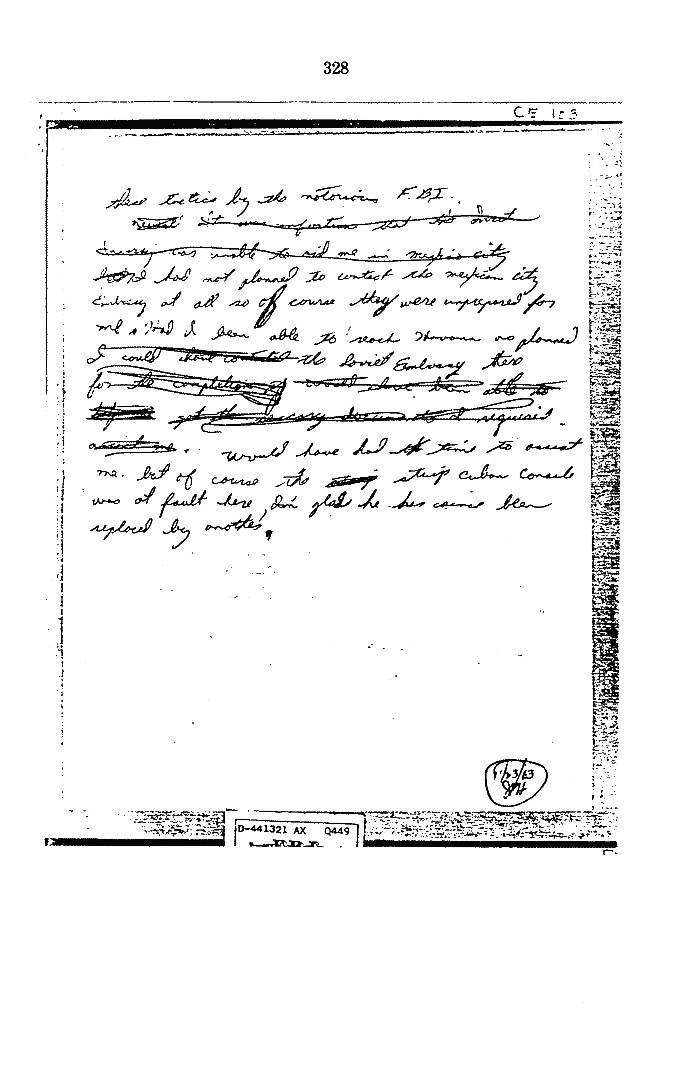 328
CE 103
these tactics by the notorious F.B.I.
It was unfortune that the Soviet
Embassy was unable to aid me in mexico city
I had not planned to contact the mexican city
Embassy at all so of course they were unprepared for
me. Had I been able to reach Havana as planned
I could have contacted the Soviet Embassy there
for the completion of would have been able to
get the necessary documents I required
assist me. would have had time to assist
me. but of course the stuip Cuban Consule
was at fault here, I'm glad he has since been
replaced by another.
D-441321 AX Q449